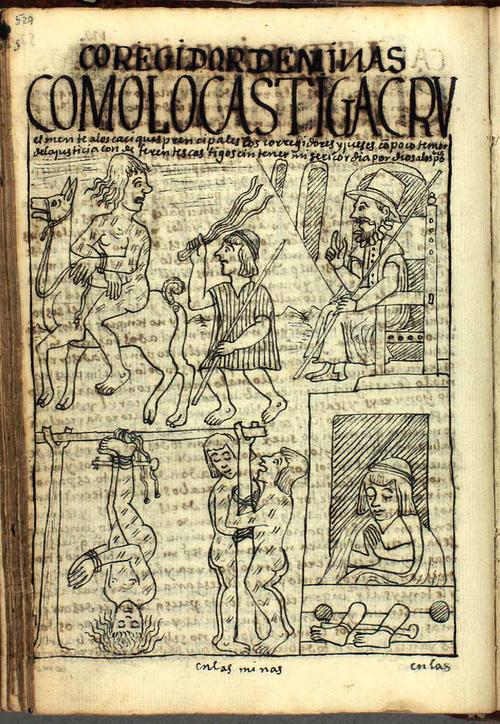 529
COREGIDOR DE MINAS
COMOLOCASTIGACRV
elmente alos caciques prencipales los corregidores y jueses cō poco temor
de la justicia con deferentes castigos cin tener misericordia por dios a los pōs
en las minas
en las